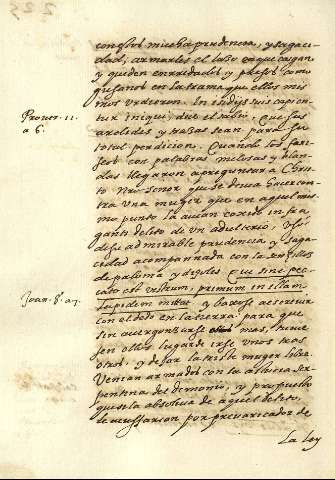 con ellos mucha prudencia, y sagaci
dad, armarles el lazo en que caigan,
y queden enrridados y presos como
gusanos en la trama que ellos mis
mos urdieron. In insidijs suis capien
tur iniqui, dice el sabio, que sus
ardides y trazas sean para su
total perdicion. Quando los fari
seos con palabras melosas y blan
das llegaron a preguntar a Chris
to Nro Señor que se devia hacer con
tra una muger que en aquel mis
mo punto la avian coxido in fra
ganti delito de un adulterio,
de su admirable prudencia y saga
cidad acompañada con la
de paloma y Qui sine pec
cato est vestrum, primum in illam
lapidem mittat y baxose a escrevir
con el dedo en la tierra para que
sin avergonzarse mas, tuvie
sen ellos lugar de irse unos tras
otros, y dejar la triste muger libre.
Venian armados con la astucia ser
pentina del demonio, y
que si la absolvia de aquel delito,
le acussarian por prevaricador de
la ley
Prover. 11.
a 6.
Joan. 8. a 7.